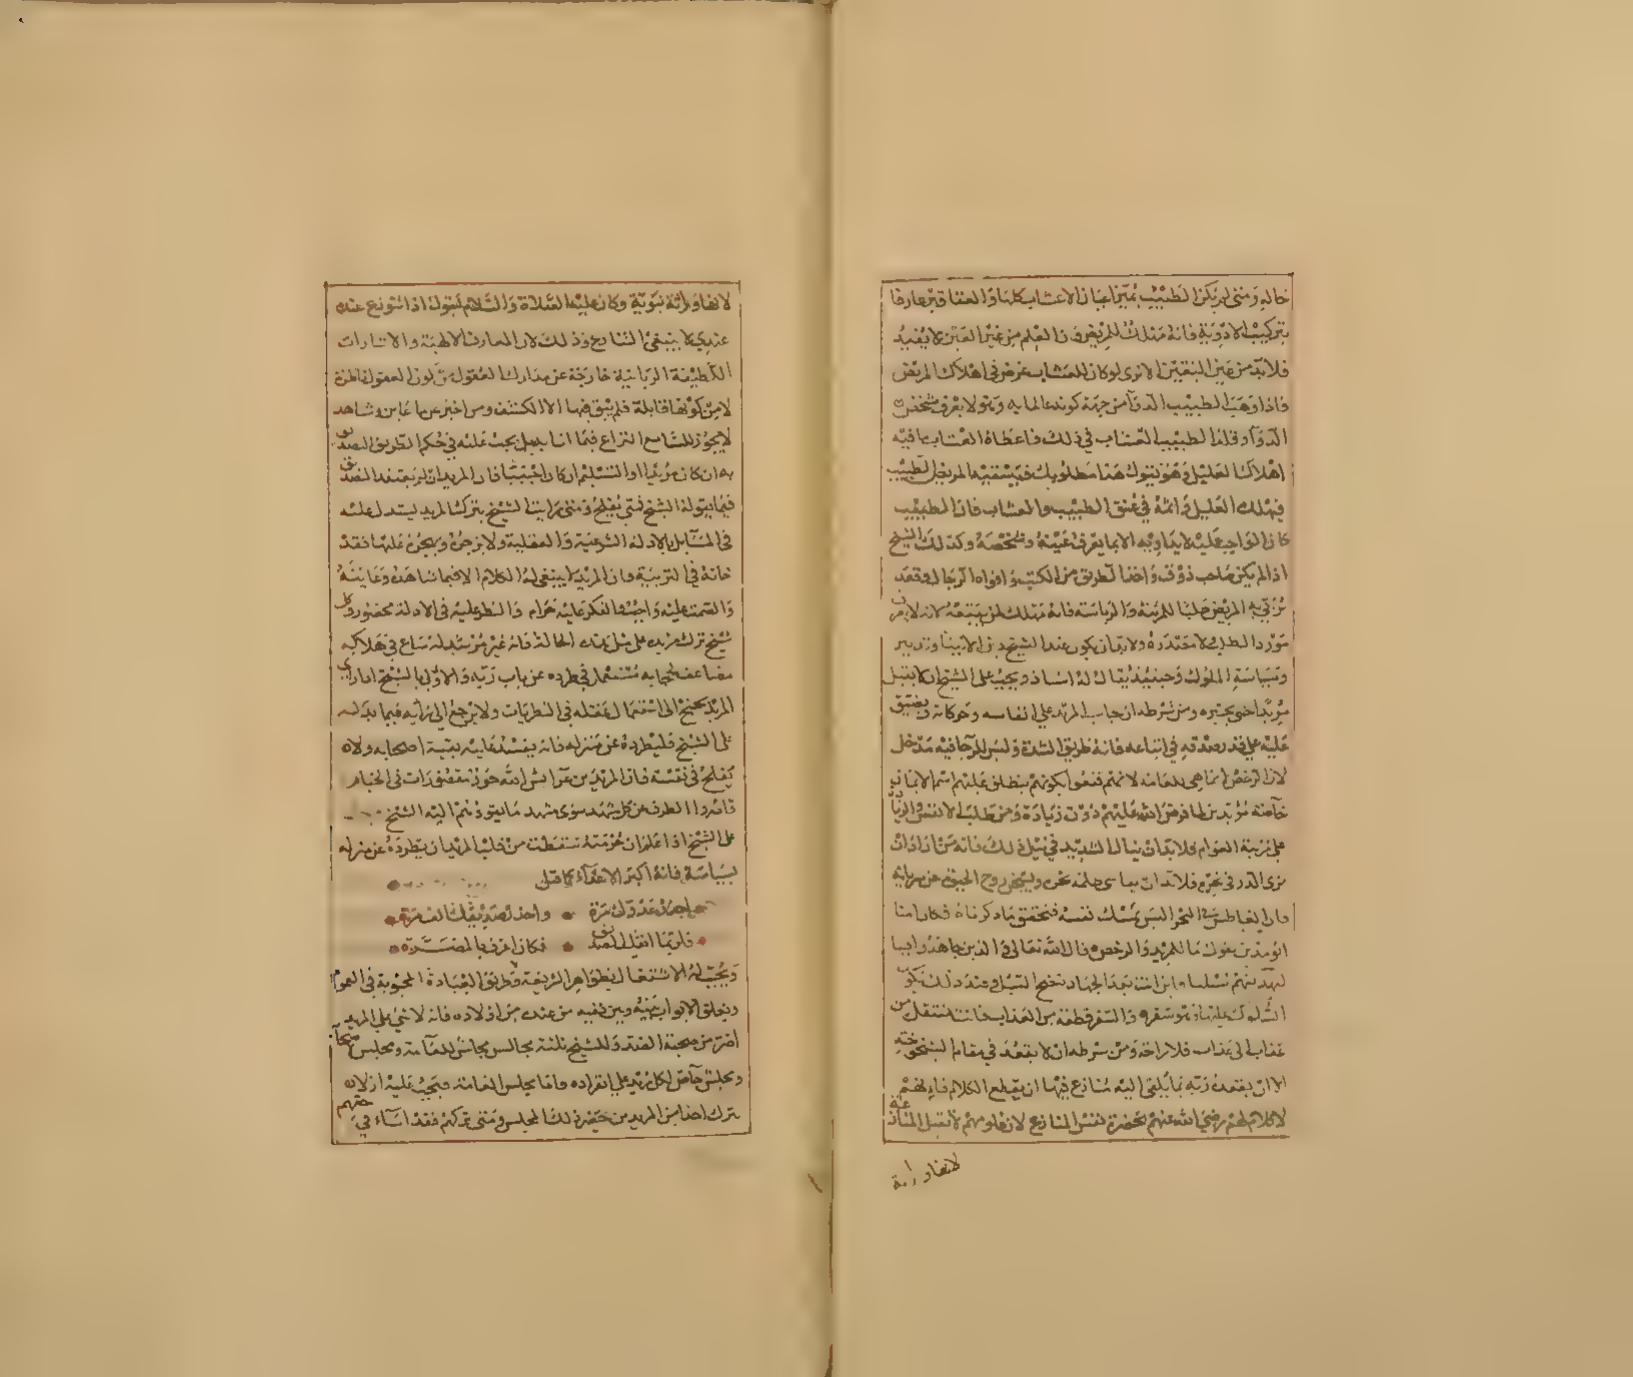 حاله ومتى لم يكن الطبيب مميزا عيان الاعشاب كلها والعقاقير عارفا
بتركيب الادوية فانه مهلك للمريض فان العلم من غير العين لا يفيد
فلا بد من عين اليقين الا ترى لو كان للعشاب غرض في اهلاك المريض
فاذا وهب الطبيب الدوآ من جهة كونه عالما به وهو لا يعرف شخص
الدوآ وقلد الطبيب العشاب في ذلك فاعطاه العشاب ما فيه
اهلاك العليل وهو يقول هذا مطلوبك فيسقيه المريض الطبيب
فيهلك العليل واثمه في عنق الطبيب والعشاب فان الطبيب
كان الواجب عليه لا يداويه الا بما يعرف عينه وشخصه وكذلك الشيخ
اذا لم يكن صاحب ذوق واخذ الطريق من الكتب وافواه الرجال وقعد
يربي به المريض طلبا للمرتبة والرياسة فانه مهلك لمن تبعه لانه لا يعرف
مورد الطالب ولا مصدره ولا بد ان يكون عند الشيخ دين الانبيا وتدبير
وسياسة الملوك وحينئذ يقال له استاذ ويجب على الشيخ ان لا يقبل
مريدا حتى يختبره ومن شرطه ان يحاسب المريد على انفاسه وحركاته ويضيق
عليه على قدر صدقه في اتباعه فانه طريق الشدة وليس للرخا فيه مدخل
لان الرخص انما هي للعامة لانهم قنعوا بكونهم ينطلق عليهم اسم الايمان
خاصة مؤيدين لما فرض الله عليهم دون زيادة ومن طلب الانفس والزيادة
على مرتبة العوام فلا بد ان ينال الشديد في نيل ذلك فانه من اراد ان
يرى الدر في نحره فلا بد ان يقاسي ظلمة بحره
فان الغاطس في البحر اليس يمسك نفسه فتحقق ما ذكرناه فكان امامنا
ابو مدين يقول ما للمريد والرخص قال الله تعالى والذين جاهدوا فينا
لنهدينهم سبلنا واين انت بعد الجهاد تتضح السبل وعند ذلك يكون
السلوك عليها فهو سفر والسفر قطعة من العذاب فانت تنتقل من
عذاب الى عذاب فلا راحة ومن شرطه ان لا يقعد في مقام الشيخوخة
الا ان يقعده ربه بما يلقي اليه منازع فيها ان يقطع الكلام فانهم
لا كلام لهم رضي الله عنهم بحضرة نفس المنازع لان علومهم لا تقبل المنازعة
لانها وراثة
لانها وراثة نبوية وكان عليه الصلاة والسلام يقول اذا تنوزع عنده
عندي لا ينبغي التنازع وذلك لان المعارف الالهية والاشارات
اللطيفة الربانية خارجة عن مدارك العقول من كون العقول ناظرة
لا من كونها قابلة فلم يبق فيها الا الكشف ومن اخبر عن ما عاين وشاهد
لا يجوز للسامع النزاع فيما اتا به بل يجب عليه في حكم الطريق التصديق
به ان كان مريدا او التسليم ان كان اجنبيا فان المريد ان لم يعتقد الصدق
فيما يقوله الشيخ فمتى يفلح ومتى رايت الشيخ يترك المريد يستدل عليه
في المسآئل بالادلة الشرعية والعقلية ولا يزجره ويهجره عليها فقد
خانه في التربية فان المريد لا ينبغي له الكلام الا فيما شاهده وعاينه
والصمت عليه واجب والفكر عليه حرام والنظر عليه في الادلة محظور وكل
شيخ ترك مريده على مثل هذه الحالة فانه غير مرشد له ساع في هلاكه
مضاعف لحجابه مستعمل في طرده عن باب ربه والاولى بالشيخ اذا راى
المريد يجنح الى استعمال عقله في النظريات ولا يرجع الى رأيه فيما يدله
على الشيخ فليطرده عن منزله فانه يفسد عليه بقية اصحابه ولا
يفلح في نفسه فان المريدين عرآئس الله حور مقصورات في الخيام
قاصروا الطرف عن كل مشهد سوى مشهد ما يقودهم اليه الشيخ
على الشيخ اذا علم ان حرمته سقطت من قلب المريد ان يطرده عن منزله
بسياسة فانه اكبر الاعدآء كما قيل
احذر عدوك مرة ● واحذر صديقك الف مرة
فلربما انقلب الصديق ● فكان اعرف بالمضرة
ويجب له الاشتغال بظواهر الشريعة وطريق العبادة المحبوبة في العموم
ويغلق الابواب بينه وبين من عنده من اولاده فانه لا شئ على المريد
اضر من صحبة الضد وللشيخ ثلثة مجالس مجلس للعآمة ومجلس لاصحابه
ومجلس خاص لكل مريد على انفراده فاما مجلس العامة فيجب عليه ان لا
يترك احدا من المريدين حضر ذلك المجلس ومتى تركهم فقد اسآء في حقهم